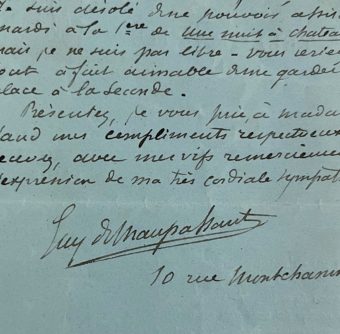 Je suis désolé de ne pouvoir assis
mardi à la 1ère de Une nuit à chatea
mais je ne suis pas libre – vous seriez
tout à fait aimable de me garder
place à la seconde.
Présentez, je vous prie, à mada
mes compliments respectueux
avec mes vifs remerciemen
l'expression de ma très cordiale sympat
Guy de Maupassant
10 rue Montchanin